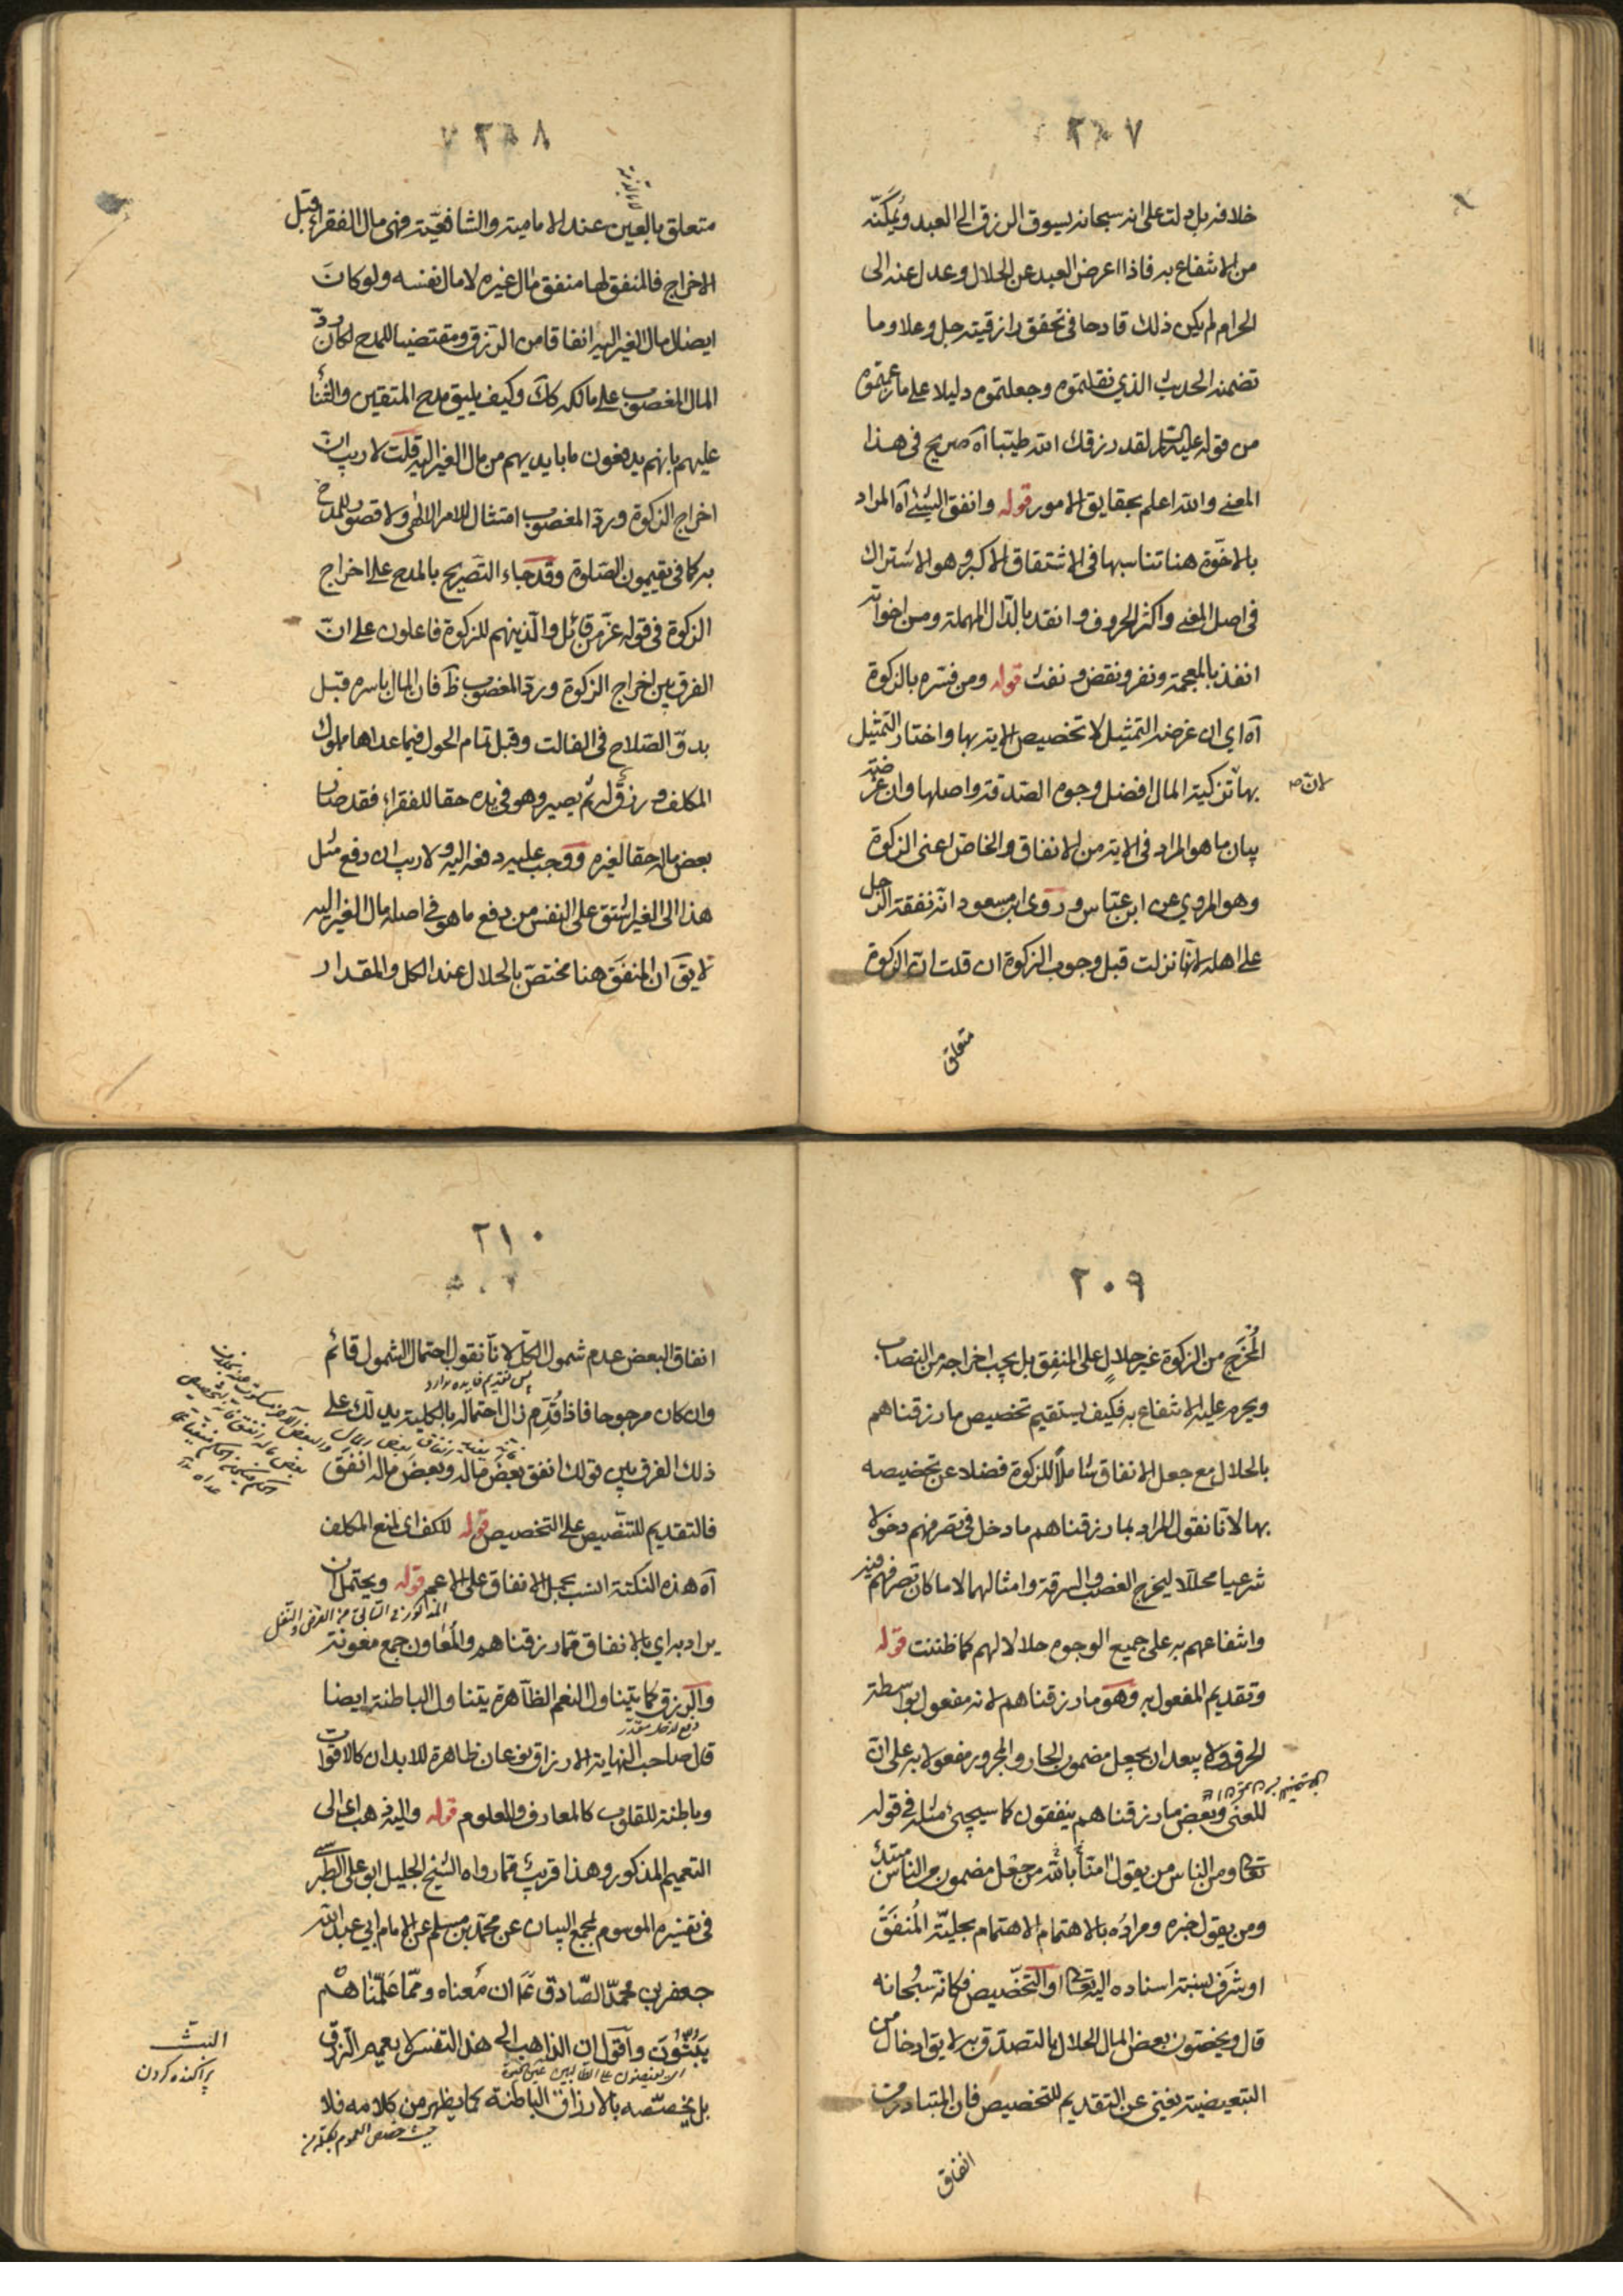 ٢٠٧
خلافه بل دلت على انه سبحانه يسوق الرزق الى العبد ويمكّنه
من الانتفاع به فاذا اعرض العبد عن الحلال وعدل عنه الى
الحرام لم يكن ذلك قادحا فى تحقق رازقيته جل وعلا وما
تضمنه الحديث الذي نقلتموه وجعلتموه دليلا على ما زعمتموه
من قوله عليه السلام لقد رزقك الله طيبا آه صريح فى هذا
المعنى والله اعلم بحقايق الامور قوله وانفق الشئ آه المراد
بالاخوّة هنا تناسبها فى الاشتقاق الاكبر وهو الاشتراك
فى اصل المعنى واكثر الحروف وانفد بالدّال المهملة ومن اخواته
انفذ بالمعجمة ونفر ونقض ونفث قوله ومن فسّره بالزكوة
آه اى ان غرضه التمثيل لا تخصيص الاية بها واختار التمثيل
بها تزكية المال افضل وجوه الصدقة واصلها وان غرضه
لان صح
بيان ما هو المراد فى الاية من الانفاق والخاص اعنى الزكوة
وهو المروي عن ابن عباس وروى ابن مسعود انه نفقة الرجل
على اهله لانها نزلت قبل وجوب الزكوة ان قلت ان الزكوة
متعلق
٢٠٨
متعلق بالعين عند الامامية والشافعيّة فهى مال الفقراء قبل
الاخراج فالمنفق لها منفق مال غيره لا مال نفسه ولو كان
ايصال مال الغير اليه انفاقا من الرزق ومقتضيا للمدح لكان ردّ
المال المغصوب على مالكه كك وكيف يليق مدح المتقين والثناء
عليهم بانهم يدفعون ما بايديهم من مال الغير اليه قلت لا ريب ان
اخراج الزكوة وردّ المغصوب امتثال للامر الالهى ولا قصور للمدح
به كما فى يقيمون الصّلوة وقد جاء التصريح بالمدح على اخراج
الزكوة فى قوله عزّ من قائل والذينهم للزكوة فاعلون على انّ
الفرق بين اخراج الزكوة وردّ المغصوب ظ فان المال باسره قبل
بدوّ الصّلاح فى الغالت وقبل تمام الحول فيما عداها مملوك
المكلف ورزق له ثم يصير وهو فى يده حقا للفقراء فقد صار
بعض ماله حقا لغيره ووجب عليه دفعه اليه ولا ريب ان دفع مثل
هذا الى الغير اشق على النفس من دفع ما هو فى اصله مال الغير اليه
لا يقَ ان المنفَق هنا مختصّ بالحلال عند الكل والمقدار
٢٠٩
المُخرَج من الزكوة غير حلالٍ على المنفِق بل يجب اخراجه من النصاب
ويحرم عليه الانتفاع به فكيف يستقيم تخصيص ما رزقناهم
بالحلال مع جعل الانفاق شاملاً للزكوة فضلا عن تخصيصه
بها لانّا نقول المراد بما رزقناهم ما دخل فى تصرفهم دخولا
شرعيا محللا ليخرج الغصب والسرقة وامثالهما لا ما كان تصرفهم فيه
وانتفاعهم به على جميع الوجوه حلالا لهم كما ظننت قوله
وتقديم المفعول به وهو ما رزقناهم لانه مفعول بواسطة
الحرف ولا يبعد ان يجعل مضمون الجار والمجرور مفعولا به على ان
المعنى وبعض ما رزقناهم ينفقون كما سيجئ مثله فى قوله
تعالى ومن الناس من يقول امنّا بالله من جعل مضمون من الناس مبتدأ
ومن يقول خبره ومراده بالاهتمام الاهتمام بحليّة المُنفَق
او شرَف نسبة اسناده اليه تعالى او التخصيص فكانّه سبحانه
قال ويخصّون بعض المال الحلال بالتصدّق به لا يق ادخال من
التبعيضية يغنى عن التقديم للتخصيص فان المتبادر من
انفاق
٢١٠
انفاق البعض عدم شمول الكلّ لانّا نقول احتمال الشمول قائم
پس تقديم فايده دارد
وان كان مرجوحا فاذا قُدّم زال احتماله بالكلية يدلّك على
ذلك الفرق بين قولك انفق بعضَ ماله وبعضَ ماله انفق
فالتقديم للتنصيص على التخصيص قوله للكف اى لمنع المكلف
آه هذه النكتة انسب بحمل الانفاق على الاعم قوله ويحتمل ان
يراد به اي بالانفاق ممّا رزقناهم والمعاون جمع معونة
والرزق كما يتناول النعم الظاهرة يتناول الباطنة ايضا
دفع لدخل مقدّر
قال صاحب النهاية الارزاق نوعان ظاهرة للابدان كالاقوات
وباطنة للقلوب كالمعارف والعلوم قوله واليه ذهب اى الى
التعميم المذكور وهذا قريب ممّا رواه الشيخ الجليل ابو على الطبرسى
فى تفسيره الموسوم بمجمع البيان عن محمّد بن مسلم عن الامام ابى عبد الله
جعفر بن محمّد الصّادق ع ان معناه وممّا علّمناهم
يبثّون واقول ان الذاهب الى هذا التفسير لا يعمم الرزق
البثّ
پراكنده كردن
بل يخصّصه بالارزاق الباطنة كما يظهر من كلامه فلا